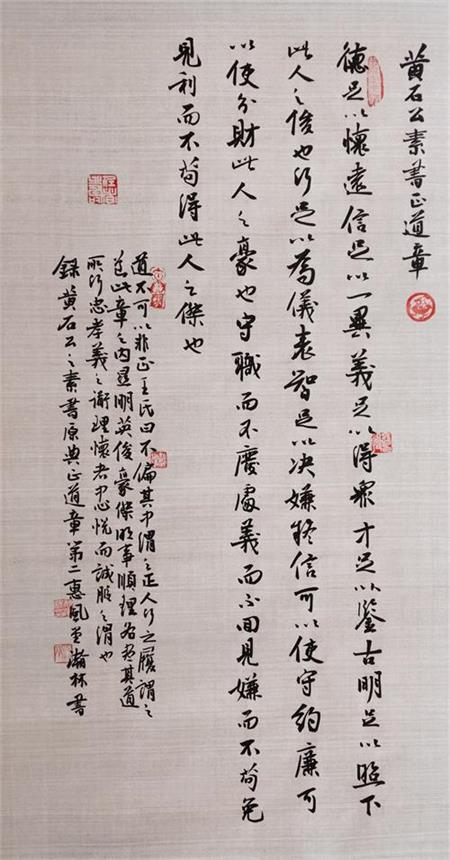 黃石公素書正道章
德足以懷遠信足以一異義足以得眾才足以鑒古明足以照下
此人之俊也行足以為儀表智足以決嫌疑信可以使守約廉可
以使分財此人之豪也守職而不廢處義而不回見嫌而不苟免
見利而不苟得此人之傑也
道不可以非正王氏曰不偏其中謂之正人行之履謂之
道此章之內顯明英俊豪傑明事順理各盡其道
所行忠孝義之理懷者中心悅而誠服之謂也
錄黃石公之素書原典正道章第二惠風堂瀚林書